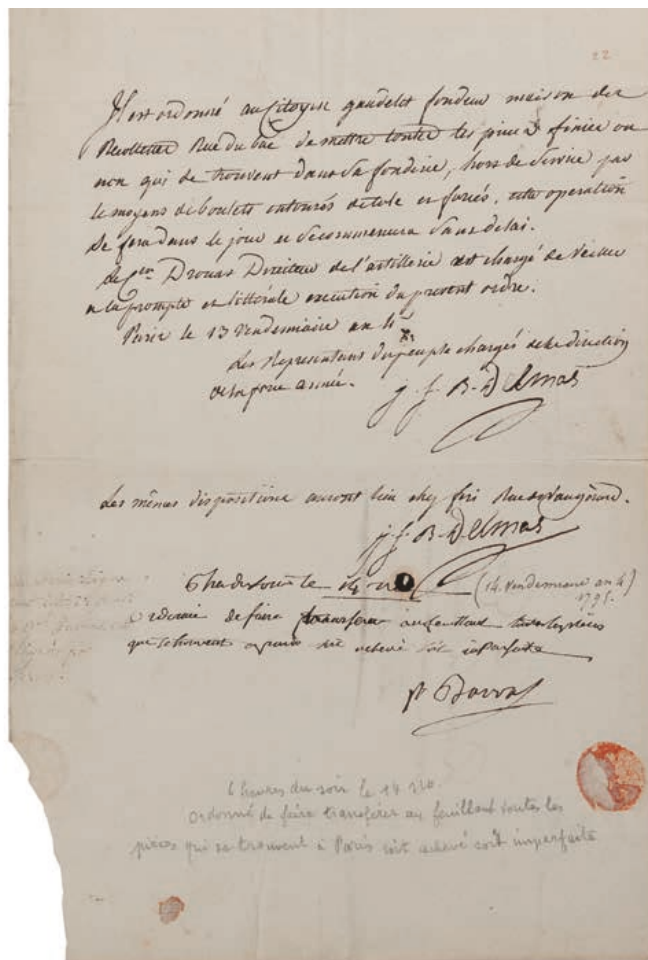 22
Il est ordonné au Citoyen gaudelet fondeur maison des
Recollettes Rue du bac de mettre toutes les pieces finies ou
non qui se trouvent dans sa fonderie, hors de service par
le moyens de boulets entourés de tole et forcés, cette operation
se fera dans le jour et se commencera sans delai.
Le Cen Drouas Directeur de l'artillerie est chargé de veiller
a la prompte et littérale execution du present ordre.
Paris le 13 Vendemiaire an 4e
Les Representans du peuple chargés de la direction
de la force armée.
j. f. B. Delmas
Les mêmes dispositions auront lieu chez Rue de Vaugirard.
j. f. B. Delmas
6 h du soir le 14
(14. Vendemiaire an 4)
1795.
ordonné de faire transferer au feuillant toutes les pieces
que se trouvent a paris soit achevé soit imparfaite
p. Barras
6 heures du soir le 14
Ordonné de faire transférer au feuillant toutes les
pièces qui se trouvent à Paris soit achevé soit imparfaite